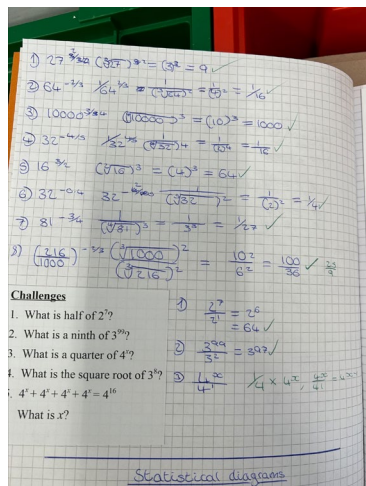 1) 27^2/3 (∛27)² = (3)² = 9 ✓
2) 64^-2/3 1/64^2/3 = 1/(∛64)² = 1/(4)² = 1/16 ✓
3) 10000^3/4 (∜10000)³ = (10)³ = 1000 ✓
4) 32^-4/5 1/32^4/5 1/(⁵√32)4 = 1/(2)4 = 1/16 ✓
5) 16^3/2 (²√16)³ = (4)³ = 64 ✓
6) 32^-0.4 32 1/(⁵√32)² = 1/(2)² = 1/4 ✓
7) 81^-3/4 1/(∜81)³ = 1/3³ = 1/27 ✓
8) (216/1000)^-2/3 (∛1000)²/(∛216)² = 10²/6² = 100/36 ✓ 25/9
Challenges
1. What is half of 2⁷?
2. What is a ninth of 3⁹⁹?
3. What is a quarter of 4ˣ?
4. What is the square root of 3⁸?
5. 4ˣ + 4ˣ + 4ˣ + 4ˣ = 4¹⁶
What is x?
1) 2⁷/2¹ = 2⁶
= 64 ✓
2) 3⁹⁹/3² = 3⁹⁷ ✓
3) 4ˣ/4¹ 1/4 × 4ˣ, 4ˣ/4¹ = 4ˣ⁻
Statistical diagrams